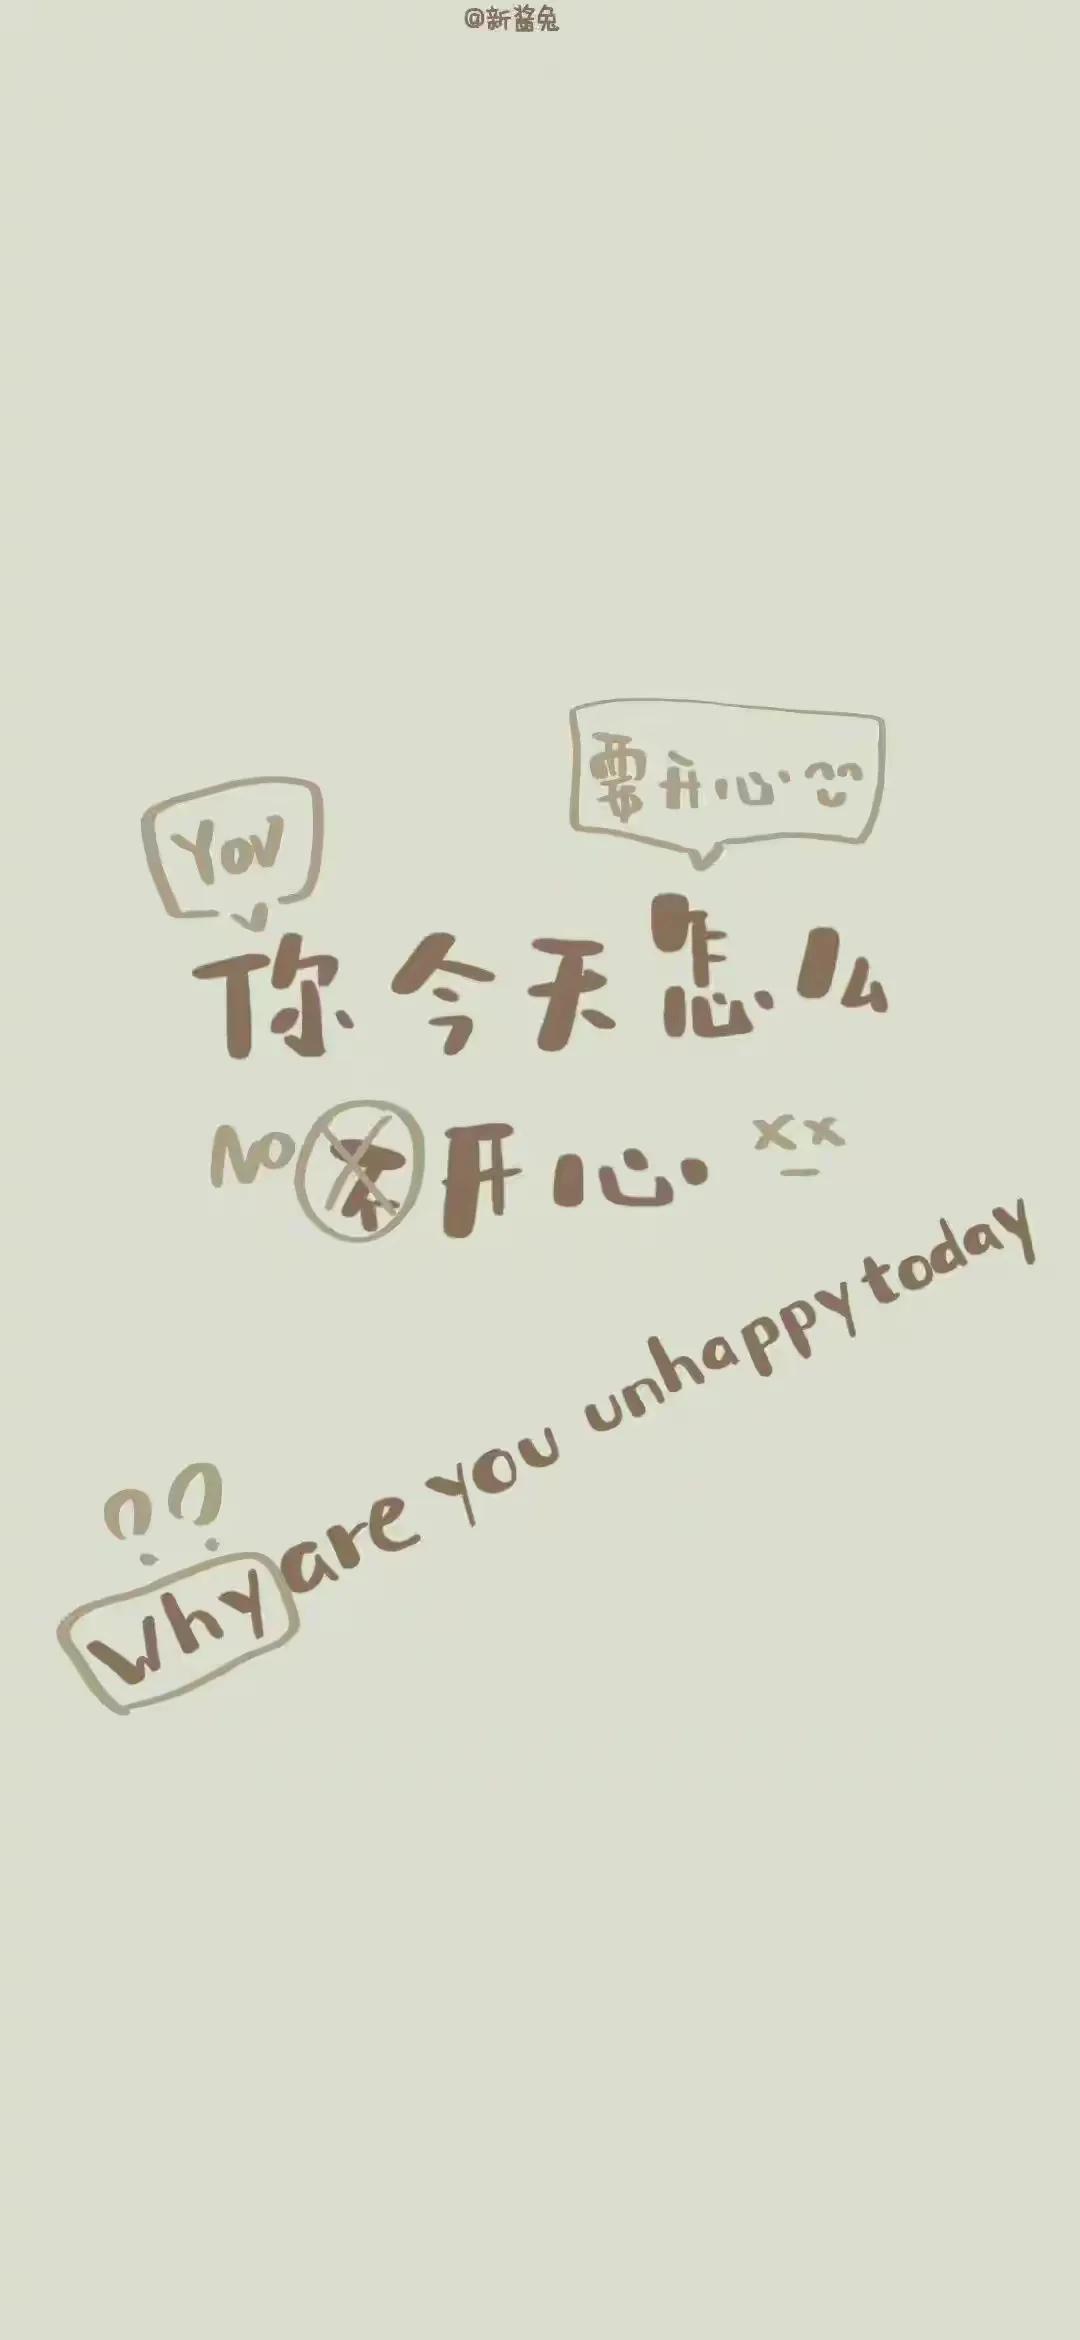 @新酱兔
要开心
You
你今天怎么
NO 不开心
Why are you unhappy today
??